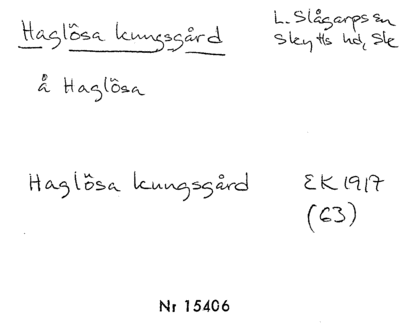 Haglösa kungsgård
L. Slågarps sn
Skytts hd, Sk
å Haglösa
Haglösa kungsgård
EK 1917
(63)
Nr 15406